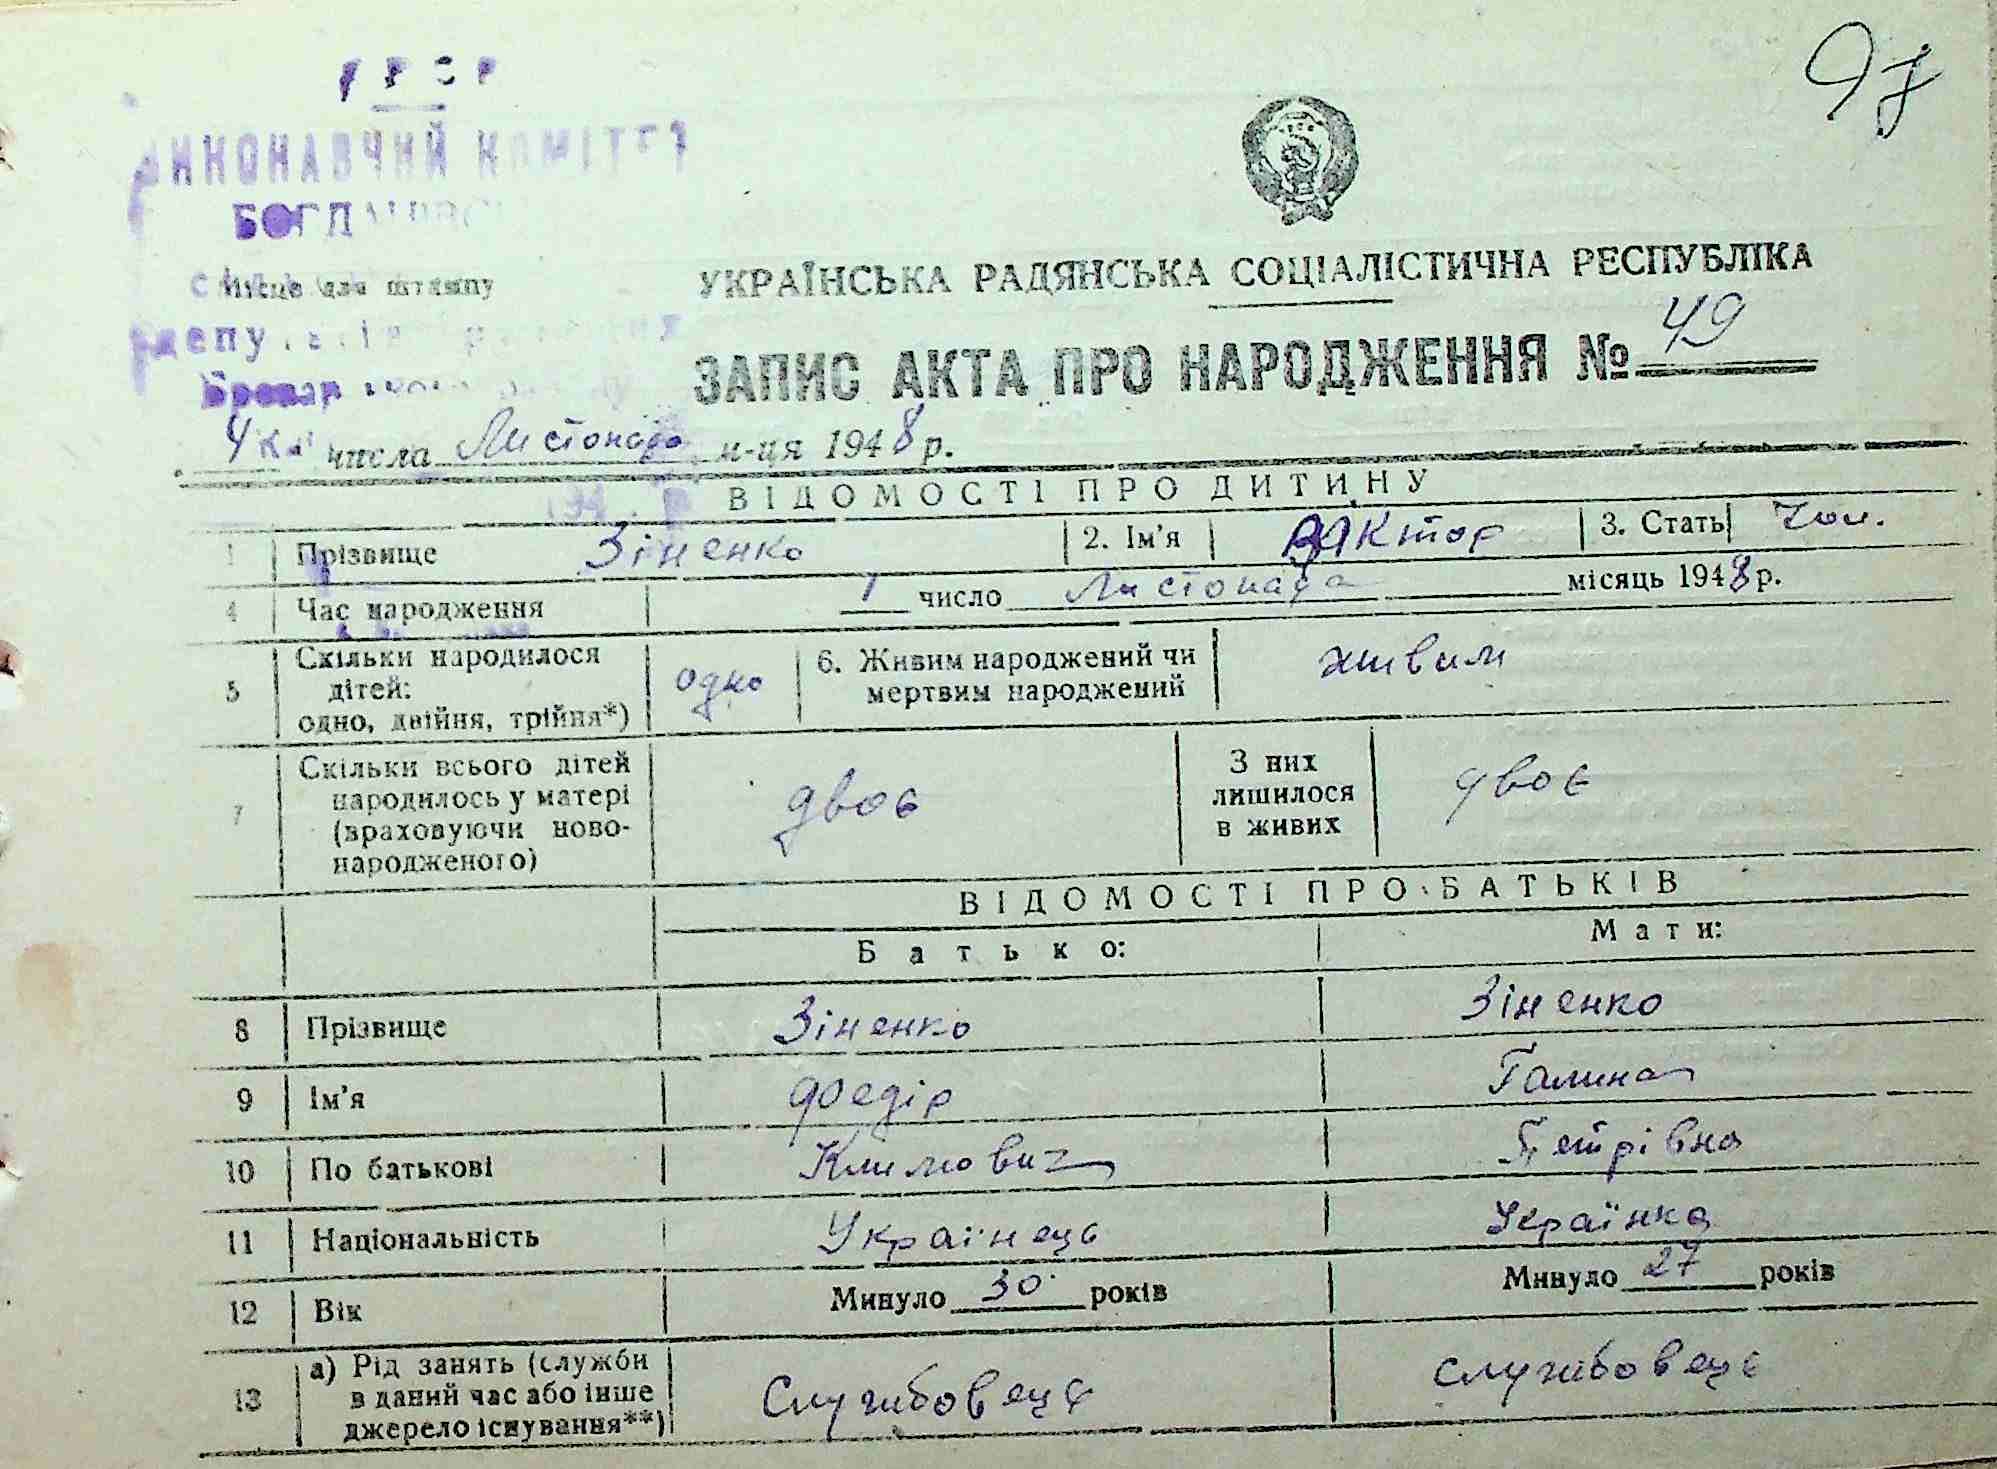 97
УРСР
ВИКОНАВЧИЙ КОМІТЕТ
БОГДАНІВС
Місце для штампу
депутатів
Бровар
УКРАЇНСЬКА РАДЯНСЬКА СОЦІАЛІСТИЧНА РЕСПУБЛІКА
ЗАПИС АКТА ПРО НАРОДЖЕННЯ № 49
4 числа Листопада м-ця 1948 р.
194
ВІДОМОСТІ ПРО ДИТИНУ
1 Прізвище Зіненко 2. Ім'я Віктор 3. Стать чол.
4 Час народження 1 число Листопада місяць 1948 р.
5 Скільки народилося дітей: одно, двійня, трійня*) одно 6. Живим народжений чи мертвим народжений живим
7 Скільки всього дітей народилось у матері (враховуючи ново-народженого) двоє З них лишилося в живих двоє
ВІДОМОСТІ ПРО БАТЬКІВ
Батько: Мати:
8 Прізвище Зіненко Зіненко
9 Ім'я Федір Галина
10 По батькові Климович Петрівна
11 Національність Українець Українка
12 Вік Минуло 30 років Минуло 27 років
13 а) Рід занять (служби в даний час або інше джерело існування**) Службовець службовець